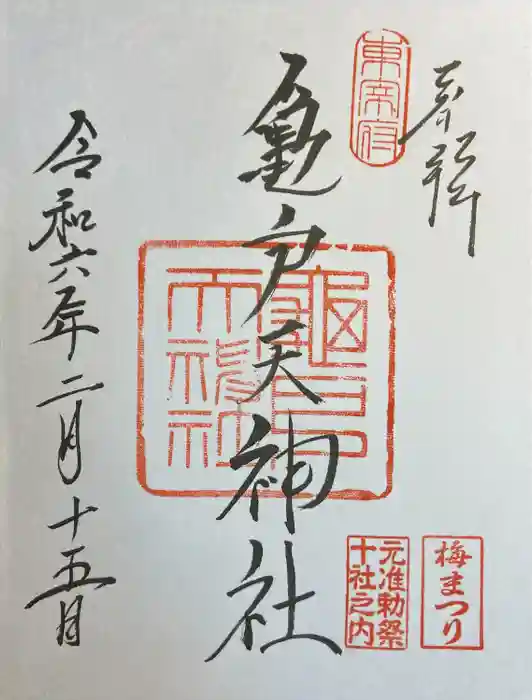 奉拝
東宰府
亀戸天神社
亀戸天神社
令和六年二月十五日
梅まつり
元准勅祭
十社之内